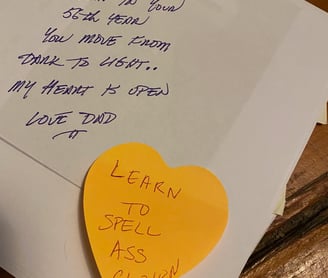 IN YOUR
56th YEAR
YOU MOVE FROM
DARK TO LIGHT..
MY HEART IS OPEN
LOVE DAD
LEARN
TO
SPELL
ASS